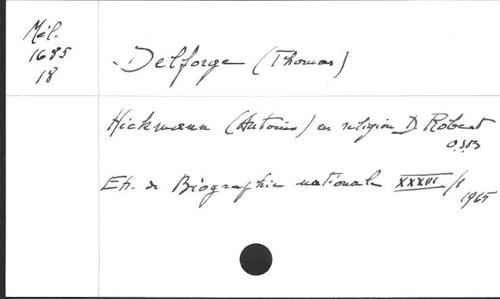 Mél.
1685
18
Delforge (Thomas)
Hickmann (Antoine) en religion D. Robert
O.S.B.
Ext. de Biographie nationale XXXIII/1
1965